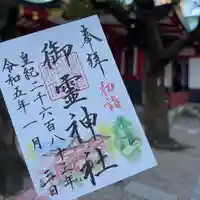 奉拝
初詣
御霊神社
皇紀二千六百八十三年
令和五年一月三日